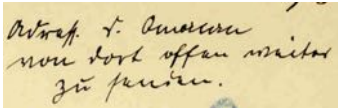 Adress. v. Omaran
von dort offen weiter
zu senden.